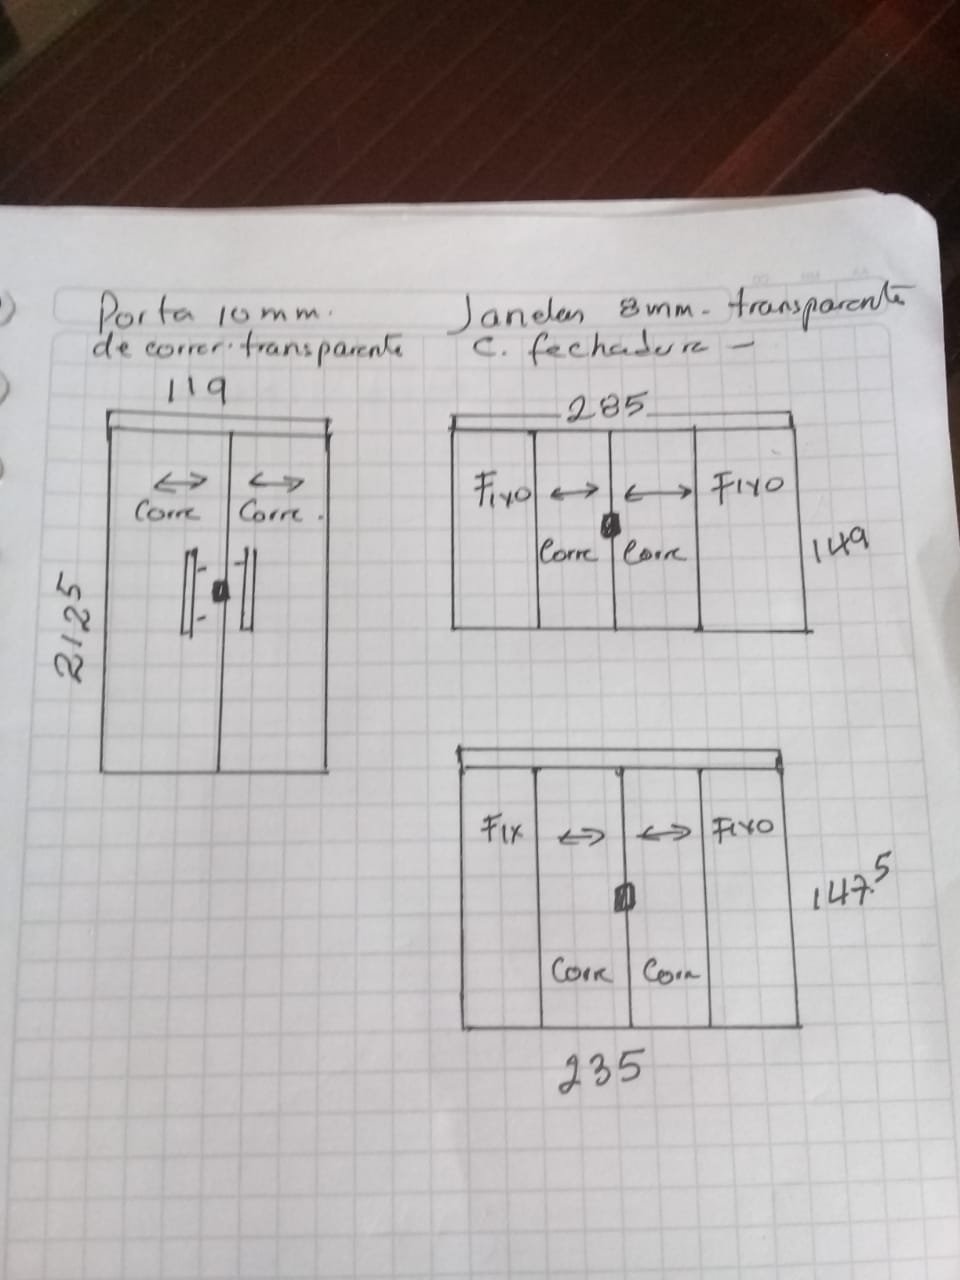 Porta 10mm.
de correr. transparente
119
Corre Corre.
2125
Janelas 8mm - transparente
c. fechadura -
285
Fixo Fixo
Corre Corre
149
Fix Fixo
147.5
Corre Corre
235